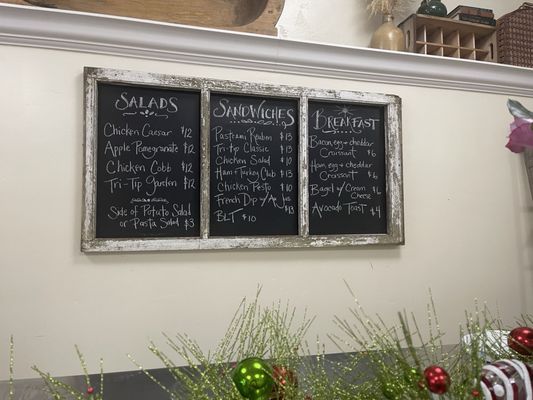 SALADS
Chicken Caesar $12
Apple Pomegranate $12
Chicken Cobb $12
Tri-Tip Garden $12
Side of Potato Salad
or Pasta Salad $3
SANDWICHES
Pastrami Reubin $13
Tri-tip Classic $13
Chicken Salad $10
Ham + Turkey Club $13
Chicken Pesto $10
French Dip w/ Au Jus $13
BLT $10
BREAKFAST
Bacon, egg + cheddar
Croissant $6
Ham, egg + cheddar
Croissant $6
Bagel w/ Cream $6
Cheese
Avocado Toast $4